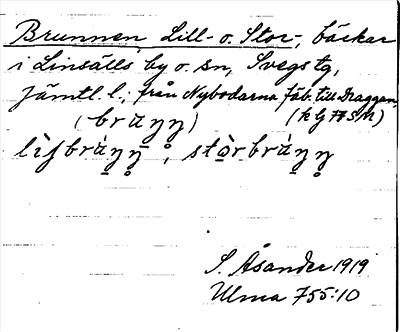 Brunnen Lill- o. Stor-, bäckar
i Linsälls by o. sn, Svegs tg,
Jämtl. l.; från Nybodarna fäb. till Draggen,
(bràŋŋ̥) (k G 77 S M)
lìſbràŋ̥ŋ̥, stòrbràŋ̥ŋ̥
S. Åsander 1919
Ulma 755:10